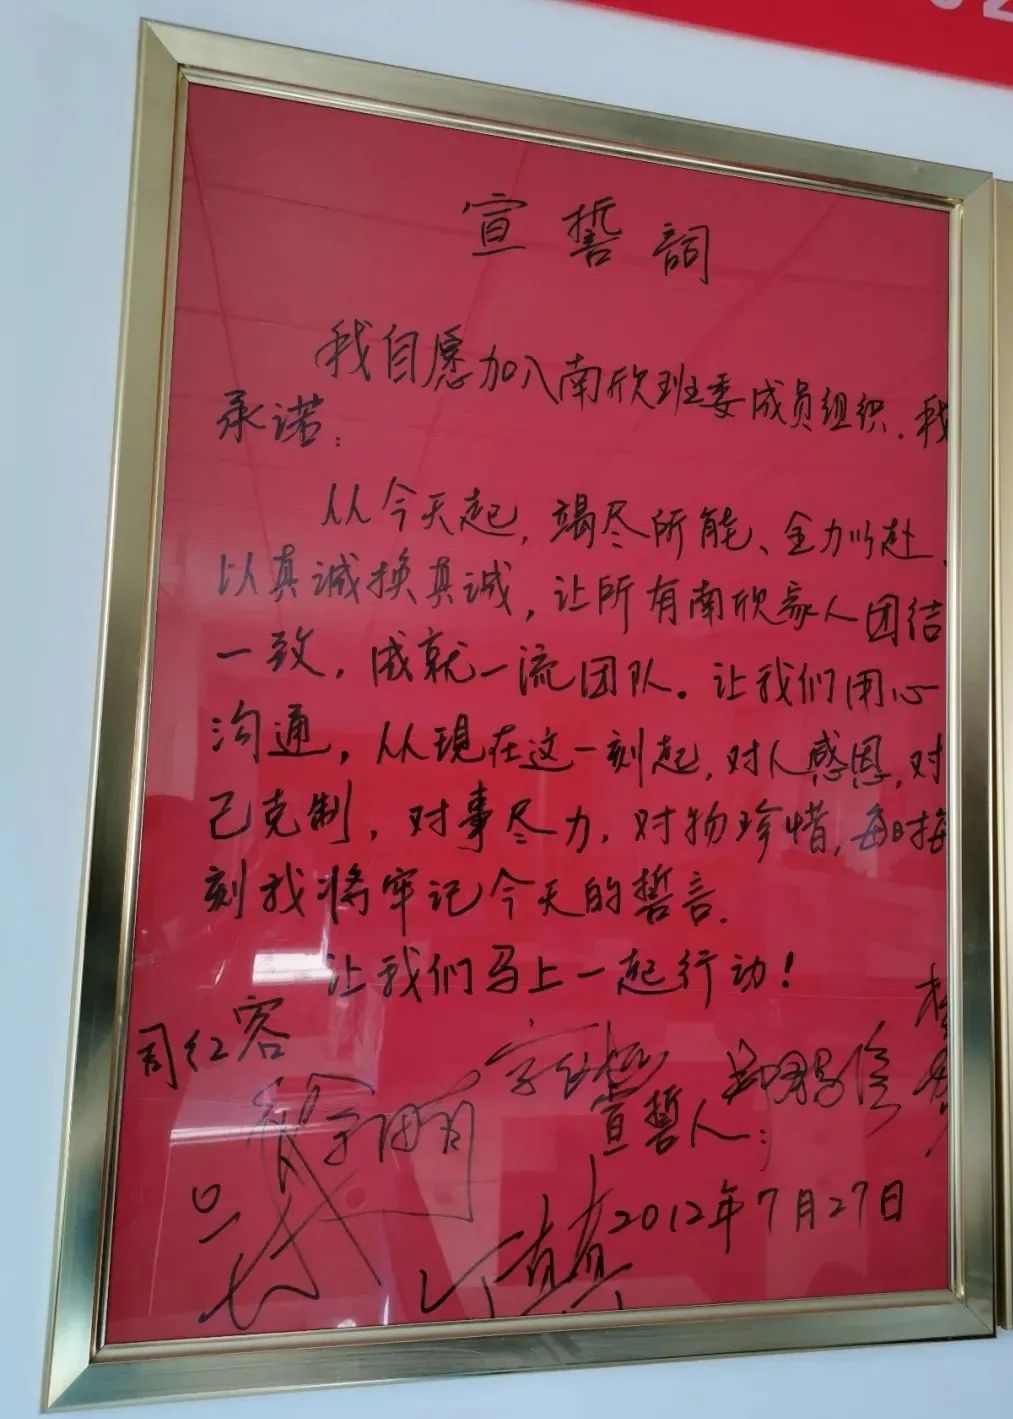 宣誓詞
我自愿加入南欣班委成员组织.我
承诺:
从今天起,竭尽所能、全力以赴、
以真诚换真诚,让所有南欣家人团结
一致,成就一流团队。让我们用心
沟通,从現在这一刻起,对人感恩,对
己克制,对事尽力,对物珍惜,每时每
刻我将牢记今天的誓言.
让我们马上一起行动!
周红容
宣誓人:
2012年7月27日